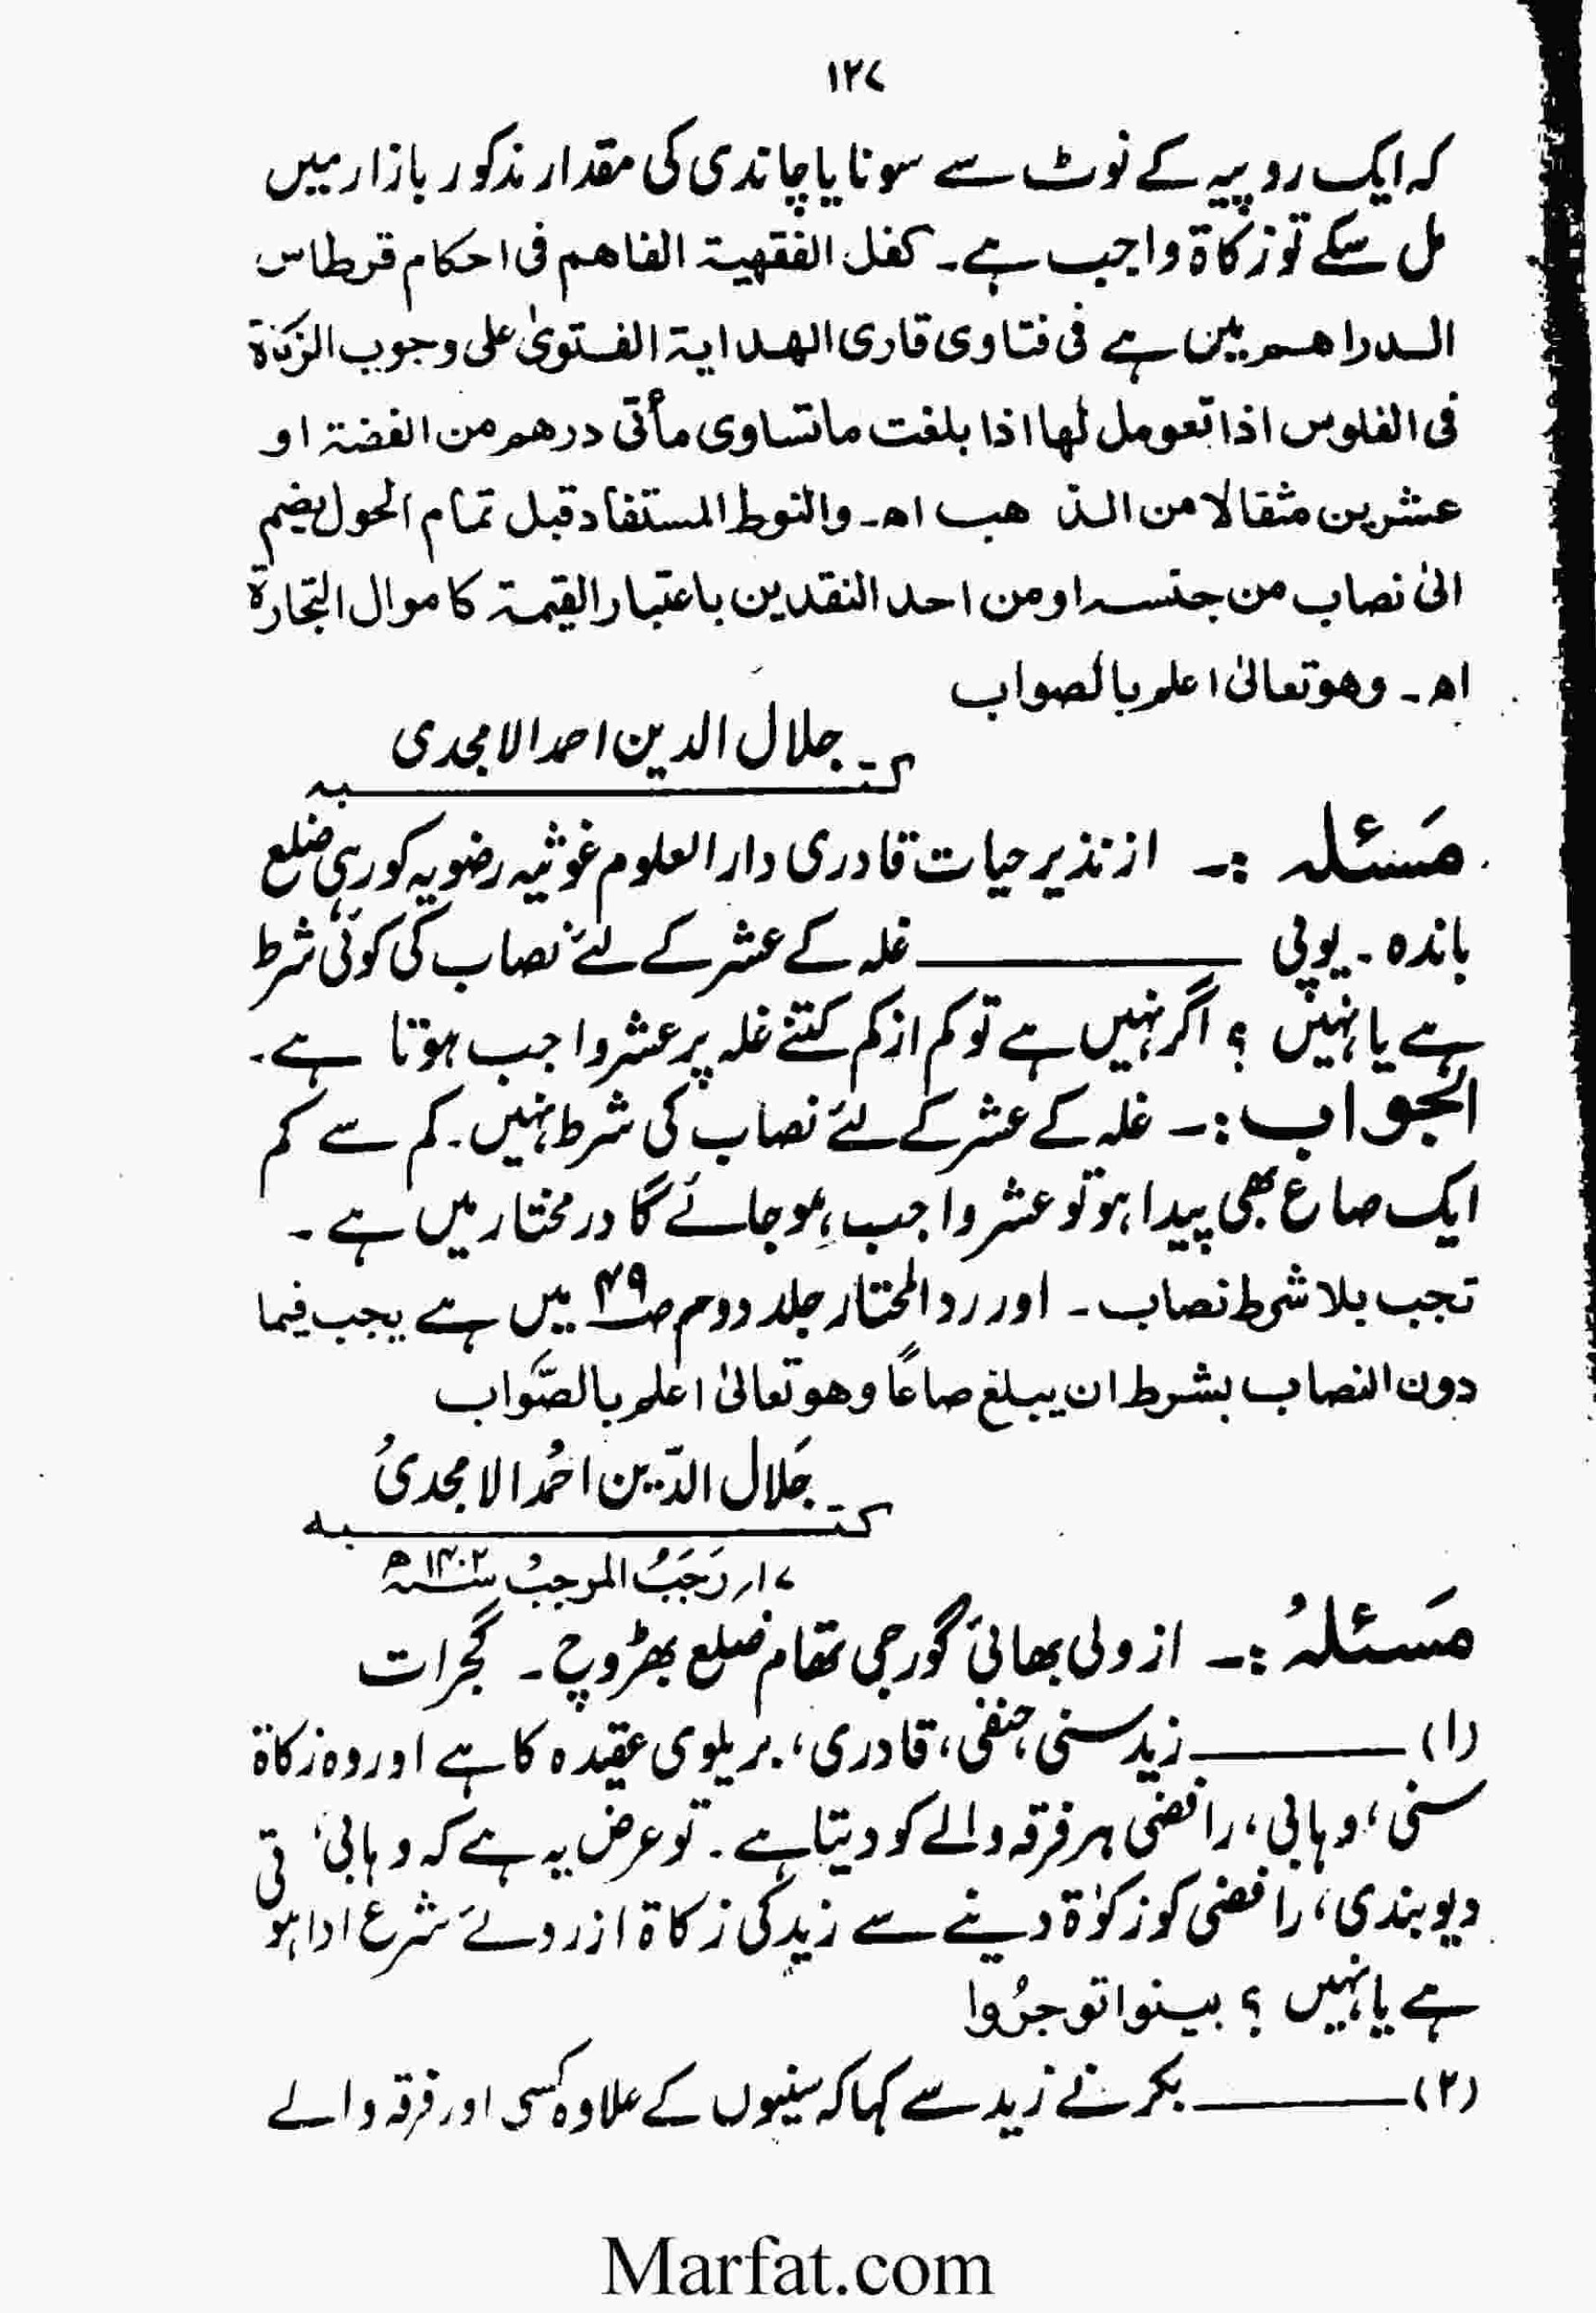 ۱۲۷
کہ ایک روپیہ کے نوٹ سے سونا یا چاندی کی مقدار مذکور بازار میں
مل سکے تو زکاۃ واجب ہے۔ کفل الفقھیۃ الفاھم فی احکام قرطاس
الدراھم میں ہے فی فتاوی قاری الھدایۃ الفتویٰ علی وجوب الزکاۃ
فی الفلوس اذا تعومل لھا اذا بلغت ما تساوی مأتی درھم من الفضۃ او
عشرین مثقالا من الذھب اھ۔ والنوط المستفاد قبل تمام الحول یضم
الیٰ نصاب من جنسہ او من احد النقدین باعتبار القیمۃ کاموال التجارۃ
اھ۔ وھو تعالیٰ اعلم بالصواب
جلال الدین احمد الامجدی
کتبہ
مَسئلہ :۔ از نذیر حیات قادری دار العلوم غوثیہ رضویہ کورہی ضلع
باندہ۔ یوپی ــــــ غلہ کے عشر کے لئے نصاب کی کوئی شرط
ہے یا نہیں ؟ اگر نہیں ہے تو کم از کم کتنے غلہ پر عشر واجب ہوتا ہے۔
الجواب :۔ غلہ کے عشر کے لئے نصاب کی شرط نہیں۔ کم سے کم
ایک صاع بھی پیدا ہو تو عشر واجب ہو جائے گا در مختار میں ہے ۔
تجب بلا شرط نصاب ۔ اور رد المحتار جلد دوم صـ ۴۹ میں ہے یجب فیما
دون النصاب بشرط ان یبلغ صاعًا وھو تعالیٰ اعلم بالصَّواب
جَلال الدّین احمُد الامجدیُ
کتبہ
۱۷؍ رَجَبُ المرجبُ سنہ ۱۴۰۲ھ
مَسئلہُ :۔ از ولی بھائی گورجی تھام ضلع بھڑوچ ۔ گجرات
(۱) ــــــ زید سنی، حنفی، قادری، بریلوی عقیدہ کا ہے اور وہ زکاۃ
سنی، وہابی، رافضی ہر فرقہ والے کو دیتا ہے۔ تو عرض یہ ہے کہ وہابی،
دیوبندی، رافضی کو زکوٰۃ دینے سے زید کی زکاۃ از روئے شرع ادا ہوتی
ہے یا نہیں ؟ بینوا توجرُوا
(۲) ــــــ بکر نے زید سے کہا کہ سنیوں کے علاوہ کسی اور فرقہ والے
Marfat.com